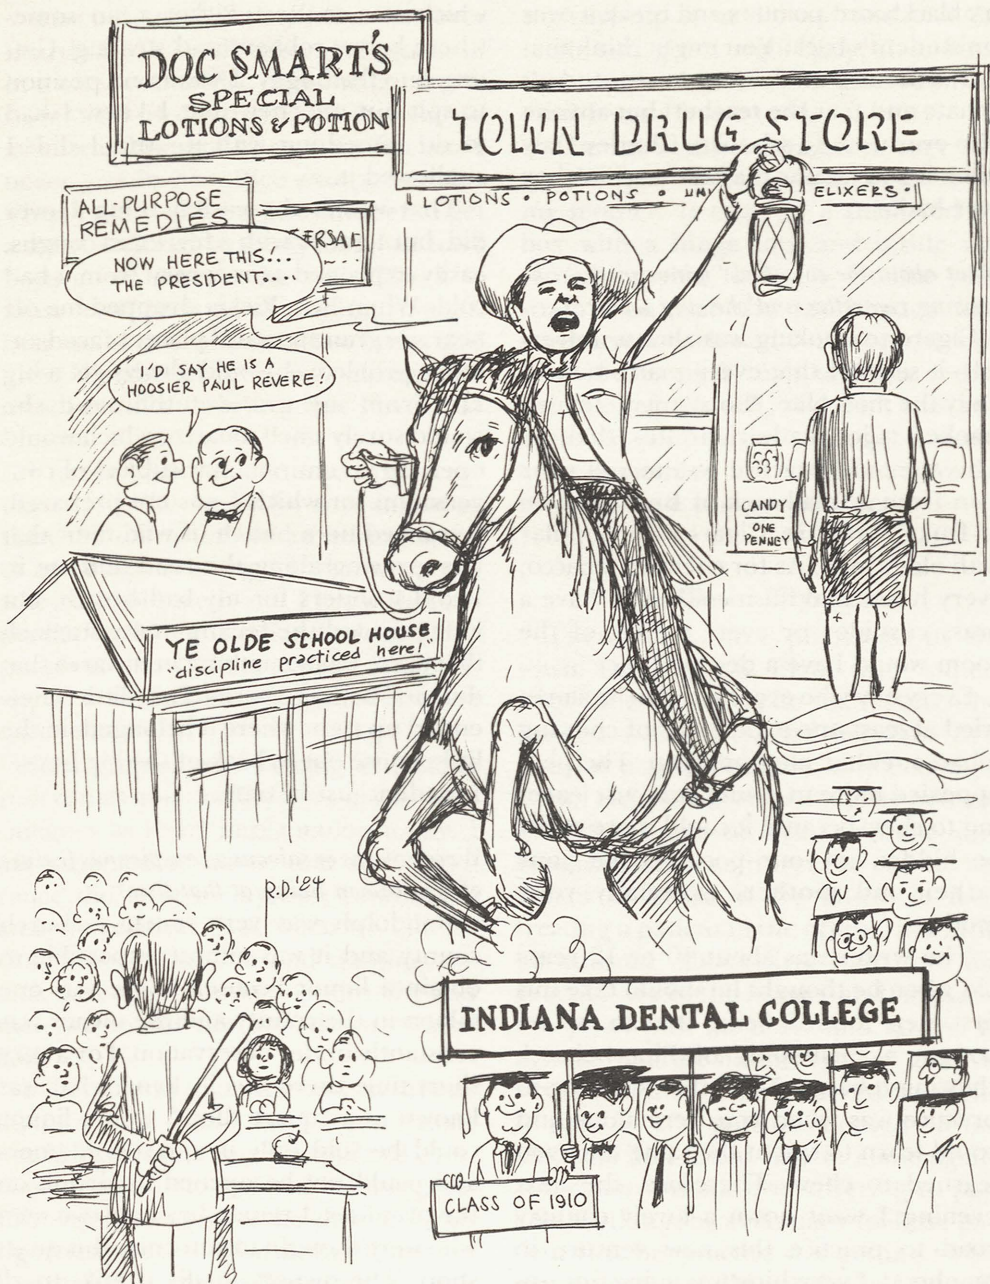 DOC SMART'S
SPECIAL
LOTIONS & POTION
TOWN DRUG STORE
LOTIONS • POTIONS • ELIXERS •
ALL-PURPOSE
REMEDIES
ERSAL
NOW HERE THIS!..
THE PRESIDENT...
I'D SAY HE IS A
HOOSIER PAUL REVERE!
CANDY
ONE
PENNEY
YE OLDE SCHOOL HOUSE
"discipline practiced here!"
R.D. '84
INDIANA DENTAL COLLEGE
CLASS OF 1910